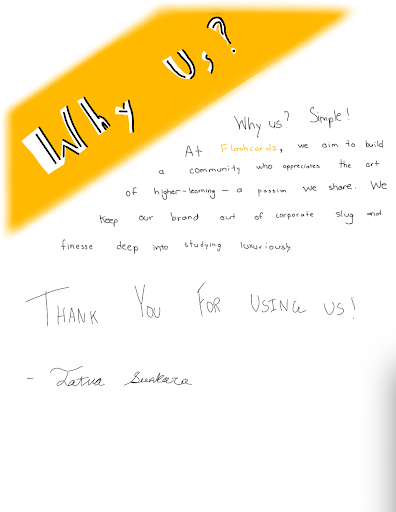 Why Us?
Why us? Simple!
At Flashcardz, we aim to build
a community who appreciates the art
of higher-learning — a passion we share. We
keep our brand out of corporate slug and
finesse deep into studying luxuriously.
THANK YOU FOR USING US!
- Tatva Sunkara